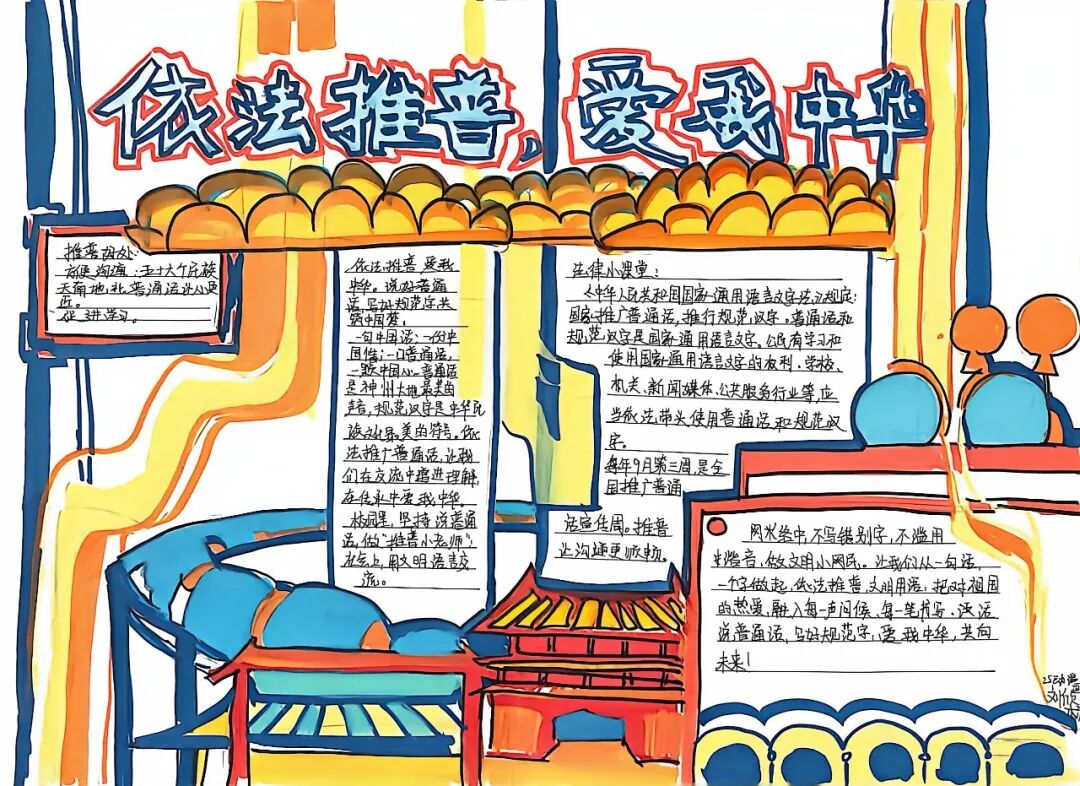 依法推普，爱我中华
推普好处：
方便沟通：五十六个民族
天南地北普通话让心更
近。
促进学习。
依法推普 爱我
中华。说好普通
话，写好规范字共
筑中国梦。
一句中国话；一份中
国情；一口普通话，
一颗中国心。普通话
是神州大地最美的
声音，规范汉字是中华民
族最美的符号。依
法推广普通话，让我
们在交流中增进理解，
在传承中爱我中华。
校园里，坚持说普通
话，做“推普小老师”
社会上，用文明语言交
流。
法律小课堂：
《中华人民共和国国家通用语言文字法》规定：
国家推广普通话，推行规范汉字。普通话和
规范汉字是国家通用语言文字。公民有学习和
使用国家通用语言文字的权利。学校、
机关、新闻媒体、公共服务行业等，应
当依法带头使用普通话和规范汉
字。
每年9月第三周，是全
国推广普通
话宣传周。推普
让沟通更顺畅。
网络中，不写错别字，不滥用
谐音，做文明小网民。让我们从一句话，
一个字做起，依法推普，文明用语，把对祖国
的热爱，融入每一声问候、每一笔书写。
说普通话，写好规范字，爱我中华，共向
未来！